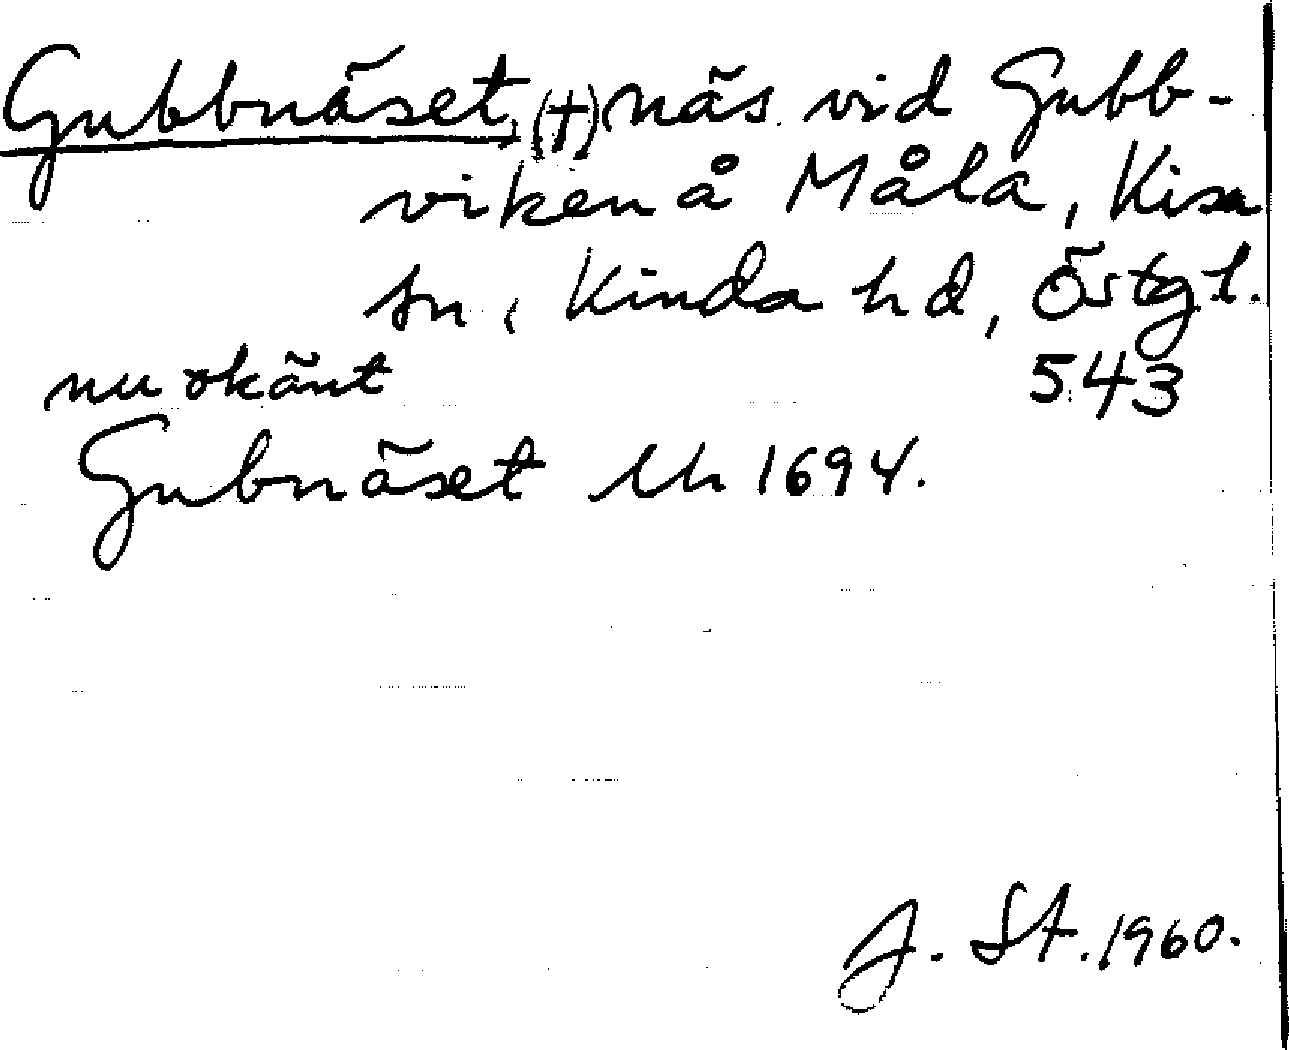 Gubbnäset, (†) näs vid Gubb-
viken å Måla, Kisa
sn, Kinda hd, Östgl.
nu okänt 543
Gubnäset Uh 1694.
J. St. 1960.